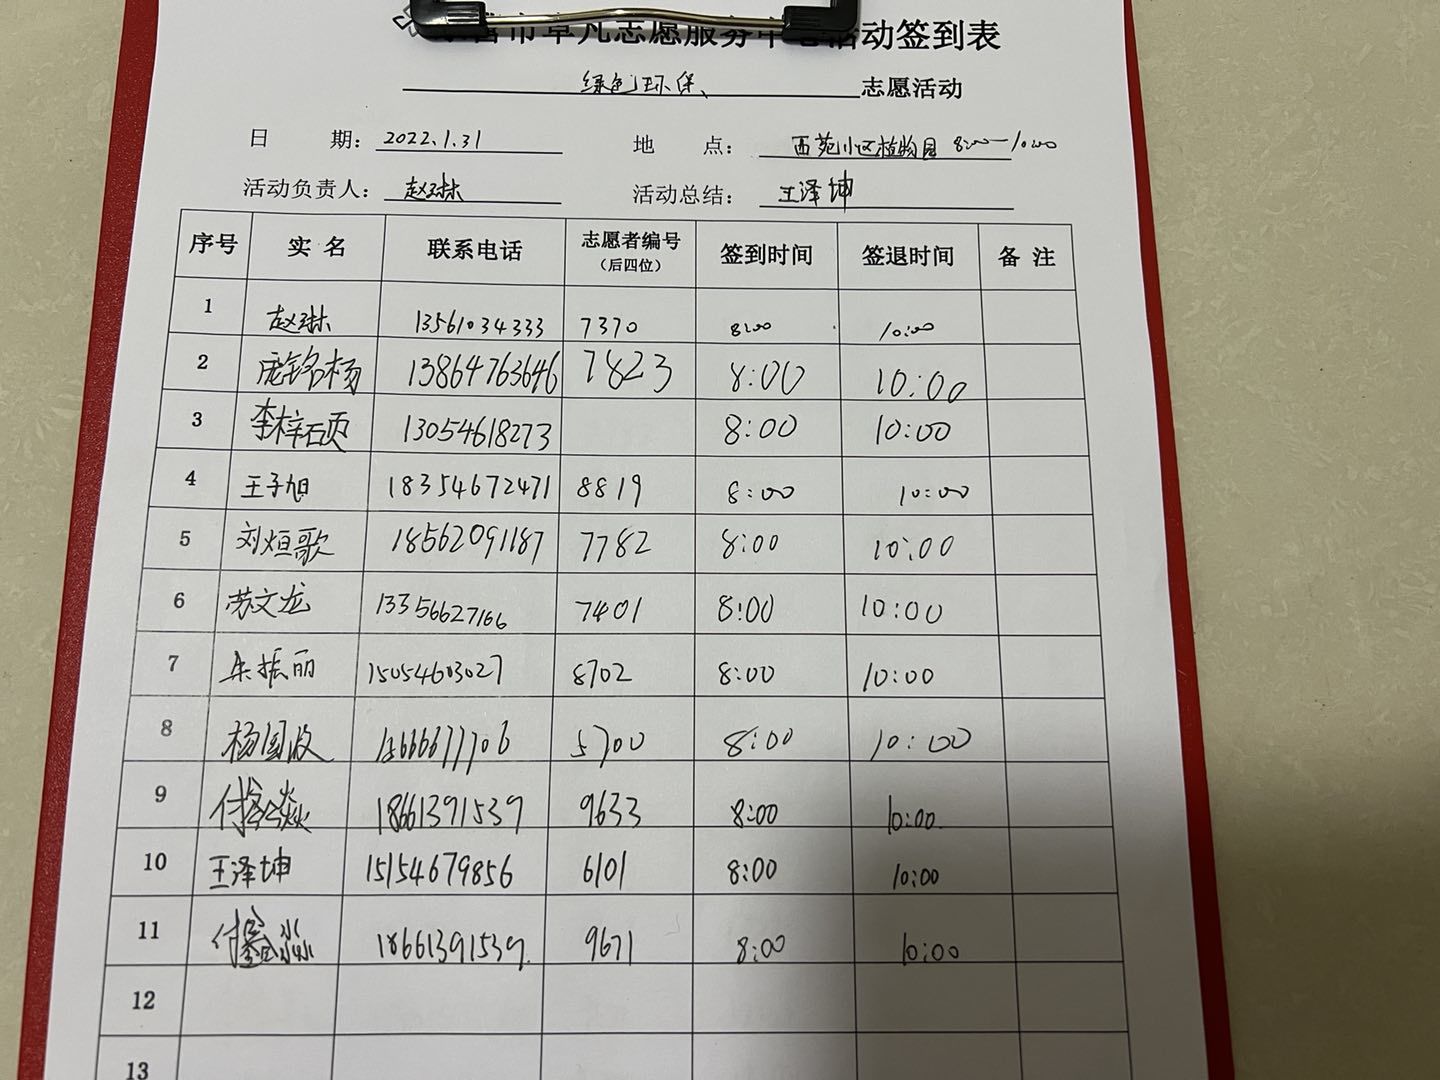 营市草凡志愿服务中心活动签到表
绿色环保、 志愿活动
日 期： 2022.1.31 地 点： 西苑小区植物园 8:00—10:00
活动负责人： 赵琳 活动总结： 王泽坤
序号 实名 联系电话 志愿者编号（后四位） 签到时间 签退时间 备注
1 赵琳 13561034333 7370 8:00 10:00
2 庞铭杨 13864763646 7823 8:00 10:00
3 李梓硕 13054618273 8:00 10:00
4 王子旭 18354672471 8819 8:00 10:00
5 刘烜歌 18562091187 7782 8:00 10:00
6 苏文龙 13356627166 7401 8:00 10:00
7 朱振丽 15054603027 8702 8:00 10:00
8 杨国波 5700 8:00 10:00
9 付 焱 18661391539 9633 8:00 10:00
10 王泽坤 15154679856 6101 8:00 10:00
11 付 淼 18661391539 9671 8:00 10:00
12
13